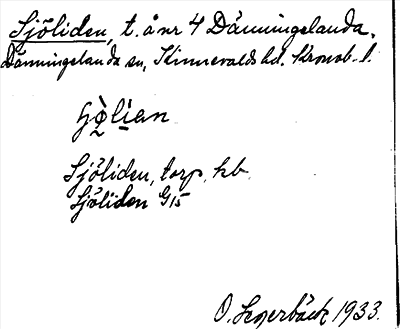 Sjöliden, t. å nr 4 Dänningelanda.
Dänningelanda sn, Kinnevalds hd. Kronob. l.
Sjöliden, torp, hb
Sjöliden G15
O. Segerbäck 1933.